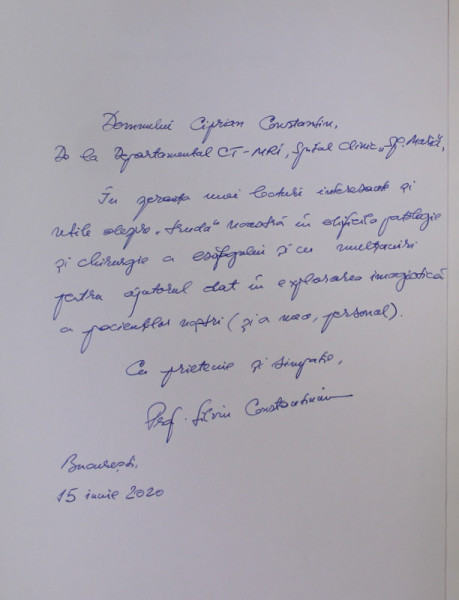 Domnului Ciprian Constantin,
De la Departamentul CT-MRI, Spital Clinic „Sf. Maria",
În speranța unei lecturi interesante și
utile despre „truda" noastră în dificila patologie
și chirurgie a esofagului și cu mulțumiri
pentru ajutorul dat în explorarea imagistică
a pacienților noștri (și a mea, personal).
Cu prietenie și simpatie,
Prof. Silviu Constantinoiu
București,
15 iunie 2020